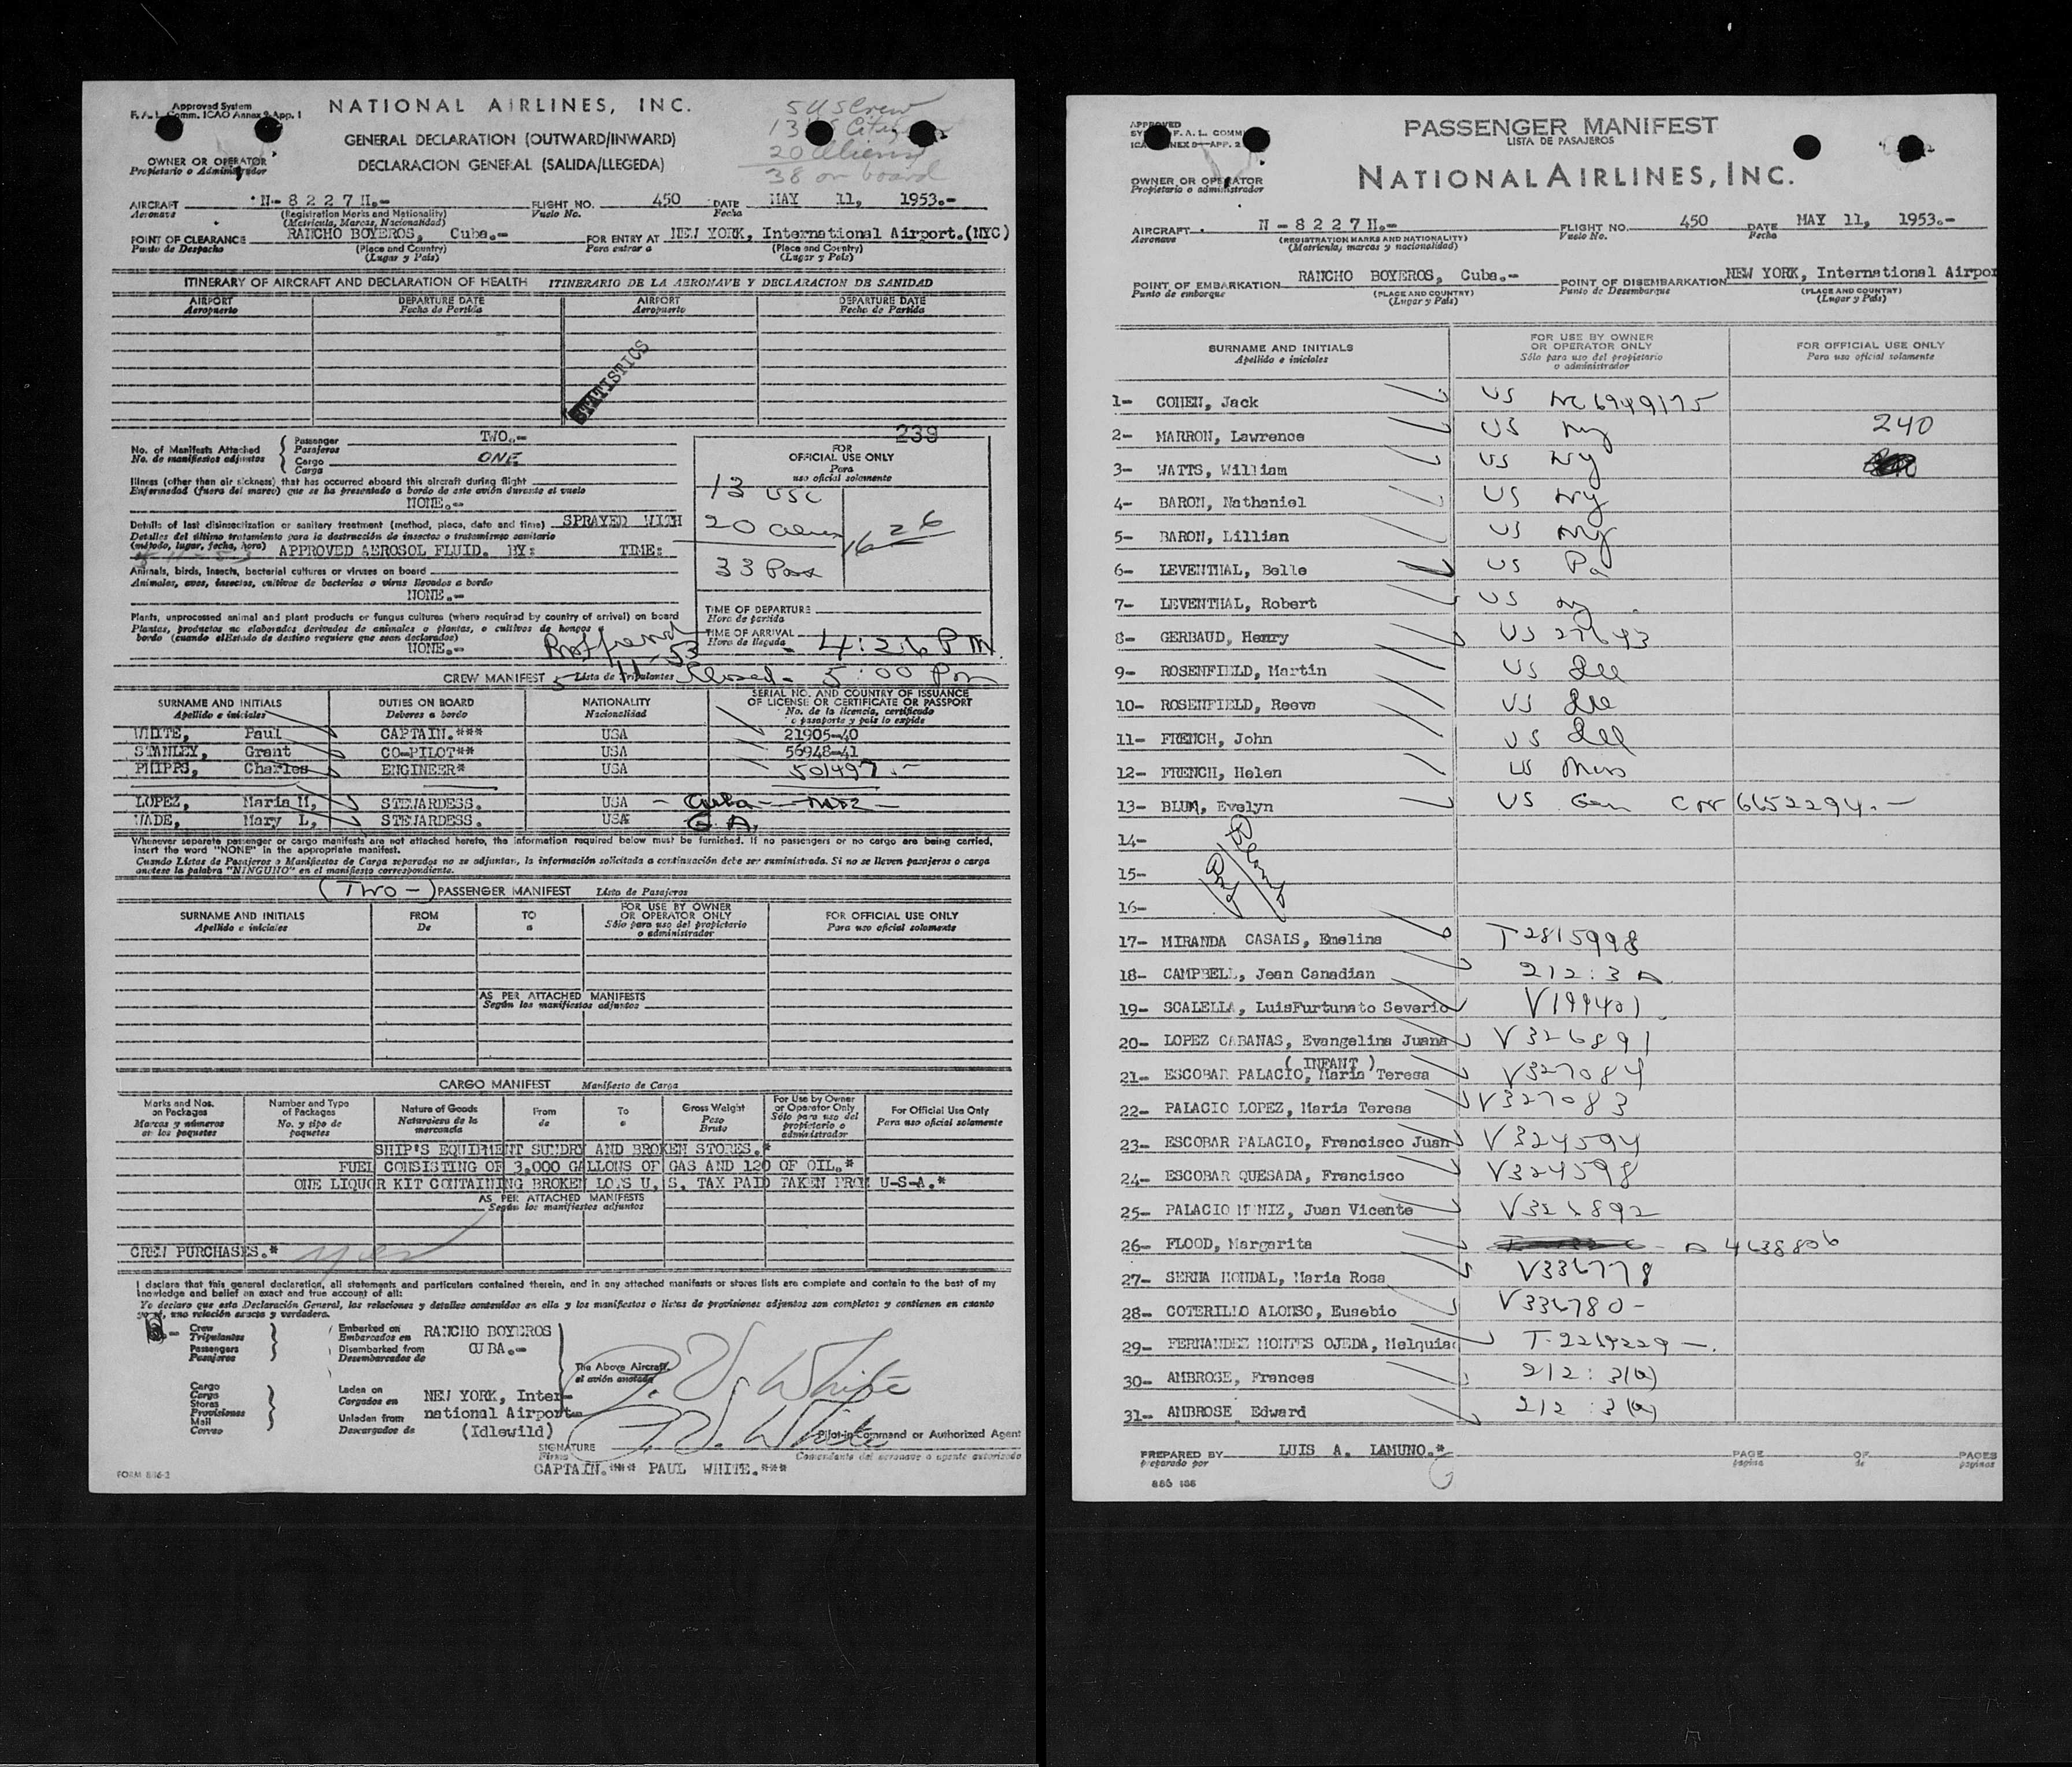 Approved System
F. A. L. Comm. ICAO Annex 9 App. 1
NATIONAL AIRLINES, INC.
5 US Crew
13 US Citizens
20 Aliens
38 on board
GENERAL DECLARATION (OUTWARD/INWARD)
DECLARACION GENERAL (SALIDA/LLEGEDA)
OWNER OR OPERATOR
Propietario o Administrador
AIRCRAFT N-8227H.- FLIGHT NO. 450 DATE MAY 11, 1953.-
Aeronave (Registration Marks and Nationality) Vuelo No. Fecha
(Matricula, Marcas, Nacionalidad)
POINT OF CLEARANCE RANCHO BOYEROS, Cuba.- FOR ENTRY AT NEW YORK, International Airport.(NYC)
Punto de Despacho (Place and Country) Para entrar a (Place and Country)
(Lugar y Pais) (Lugar y Pais)
ITINERARY OF AIRCRAFT AND DECLARATION OF HEALTH ITINERARIO DE LA AERONAVE Y DECLARACION DE SANIDAD
AIRPORT DEPARTURE DATE AIRPORT DEPARTURE DATE
Aeropuerto Fecha de Partida Aeropuerto Fecha de Partida
STATISTICS
239
No. of Manifests Attached Passenger TWO.-
No. de manifiestos adjuntos Pasajeros
Cargo ONE
Carga
FOR
OFFICIAL USE ONLY
Para
uso oficial solamente
13 USC
20 Alien
33 Pax
16 26
Illness (other than air sickness) that has occurred aboard this aircraft during flight
Enfermedad (fuera del mareo) que se ha presentado a bordo de este avión durante el vuelo
NONE.-
Details of last disinsectization or sanitary treatment (method, place, date and time) SPRAYED WITH
Detalles del último tratamiento para la destrucción de insectos o tratamiento sanitario
(método, lugar, fecha, hora) APPROVED AEROSOL FLUID. BY: TIME:
Animals, birds, insects, bacterial cultures or viruses on board
Animales, aves, insectos, cultivos de bacterias o virus llevados a bordo
NONE.-
Plants, unprocessed animal and plant products or fungus cultures (where required by country of arrival) on board
Plantas, productos no elaborados derivados de animales o plantas, o cultivos de hongos
bordo (cuando elEstado de destino requiere que sean declarados)
NONE.-
TIME OF DEPARTURE
Hora de partida
TIME OF ARRIVAL 4:26 PM
Hora de llegada
11-53
Closed- 5:00 Pm
CREW MANIFEST 5 Lista de Tripulantes
SURNAME AND INITIALS DUTIES ON BOARD NATIONALITY SERIAL NO. AND COUNTRY OF ISSUANCE
OF LICENSE OR CERTIFICATE OR PASSPORT
Apellido e iniciales Deberes a bordo Nacionalidad No. de la licencia, certificado
o pasaporte y pais lo expide
WHITE, Paul CAPTAIN.*** USA 21905-40
STANLEY, Grant CO-PILOT** USA 56948-41
PHIPPS, Charles ENGINEER* USA 501497.-
LOPEZ, Maria H, STEWARDESS. USA - Cuba -
WADE, Mary L, STEWARDESS. USA G A.
Whenever separate passenger or cargo manifests are not attached hereto, the information required below must be furnished. If no passengers or no cargo are being carried,
insert the word "NONE" in the appropriate manifest.
Cuando Listas de Pasajeros o Manifiestos de Carga separados no se adjuntan, la información solicitada a continuación debe ser suministrada. Si no se lleven pasajeros o carga
anotese la palabra "NINGUNO" en el manifiesto correspondiente.
(TWO-) PASSENGER MANIFEST Lista de Pasajeros
SURNAME AND INITIALS FROM TO FOR USE BY OWNER
OR OPERATOR ONLY FOR OFFICIAL USE ONLY
Apellido e iniciales De a Sólo para uso del propietario
o administrador Para uso oficial solamente
AS PER ATTACHED MANIFESTS
Según los manifiestos adjuntos
CARGO MANIFEST Manifiesto de Carga
Marks and Nos.
on Packages
Marcas y números
en los paquetes
Number and Type
of Packages
No. y tipo de
paquetes
Nature of Goods
Naturaleza de la
mercancia
From
de
To
a
Gross Weight
Peso
Bruto
For Use by Owner
or Operator Only
Sólo para uso del
propietario o
administrador
For Official Use Only
Para uso oficial solamente
SHIP'S EQUIPMENT SUNDRY AND BROKEN STORES.*
FUEL CONSISTING OF 3,000 GALLONS OF GAS AND 120 OF OIL.*
ONE LIQUOR KIT CONTAINING BROKEN LOTS U. S. TAX PAID TAKEN FROM U-S-A.*
AS PER ATTACHED MANIFESTS
Según los manifiestos adjuntos
CREW PURCHASES.* yes
I declare that this general declaration, all statements and particulars contained therein, and in any attached manifests or stores lists are complete and contain to the best of my
knowledge and belief an exact and true account of all:
Yo declaro que esta Declaración General, las relaciones y detalles contenidos en ella y los manifiestos o listas de provisiones adjuntos son completos y contienen en cuanto
yo sé, una relación exacta y verdadera.
Crew
Tripulantes
Passengers
Pasajeros
Embarked on RANCHO BOYEROS
Embarcados en
Disembarked from CUBA.-
Desembarcados de
The Above Aircraft
el avión anotado
Cargo
Carga
Stores
Provisiones
Mail
Correo
Laden on NEW YORK, Inter-
Cargados en
Unladen from national Airport-
Descargados de (Idlewild)
P. V. White
P. V. White
Pilot-in-Command or Authorized Agent
SIGNATURE
Firma Comandante del aeronave o agente autorizado
CAPTAIN.*** PAUL WHITE.***
FORM 886-2
APPROVED
SYSTEM F. A. L. COMM
ICAO ANNEX 9—APP. 2
PASSENGER MANIFEST
LISTA DE PASAJEROS
OWNER OR OPERATOR
Propietario o administrador
NATIONAL AIRLINES, INC.
AIRCRAFT N-8227H.- FLIGHT NO. 450 DATE MAY 11, 1953.-
Aeronave (REGISTRATION MARKS AND NATIONALITY) Vuelo No. Fecha
(Matricula, marcas y nacionalidad)
POINT OF EMBARKATION RANCHO BOYEROS, Cuba.- POINT OF DISEMBARKATION NEW YORK, International Airpor
Punto de emborque (PLACE AND COUNTRY) Punto de Desembarque (PLACE AND COUNTRY)
(Lugar y Pais) (Lugar y Pais)
SURNAME AND INITIALS
Apellido e iniciales
FOR USE BY OWNER
OR OPERATOR ONLY
Sólo para uso del propietario
o administrador
FOR OFFICIAL USE ONLY
Para uso oficial solamente
1- COHEN, Jack US NC6949175
2- MARRON, Lawrence US NY 240
3- WATTS, William US NY
4- BARON, Nathaniel US NY
5- BARON, Lillian US NY
6- LEVENTHAL, Belle US Pa
7- LEVENTHAL, Robert US NY
8- GERBAUD, Henry US 27643
9- ROSENFIELD, Martin US Ill
10- ROSENFIELD, Reeva US Ill
11- FRENCH, John US Ill
12- FRENCH, Helen US
13- BLUM, Evelyn US Ger CNr 6652294.-
14-
15-
16-
17- MIRANDA CASAIS, Emelina T2815998
18- CAMPBELL, Jean Canadian 212:3 A
19- SCALELLA, LuisFurtunato Severio V199401
20- LOPEZ CABANAS, Evangelina Juana V326891
(INFANT)
21- ESCOBAR PALACIO, Maria Teresa V327084
22- PALACIO LOPEZ, Maria Teresa V327083
23- ESCOBAR PALACIO, Francisco Juan V324594
24- ESCOBAR QUESADA, Francisco V324598
25- PALACIO MUNIZ, Juan Vicente V326892
26- FLOOD, Margarita - A 4638806
27- SERNA MONDAL, Maria Rosa V336778
28- COTERILLO ALONSO, Eusebio V336780-
29- FERNANDEZ MONTES OJEDA, Melquiad T-2219229-.
30- AMBROSE, Frances 212:3(a)
31- AMBROSE Edward 212:3(a)
PREPARED BY LUIS A. LAMUNO.* PAGE OF PAGES
preparado por página de páginas
886 186